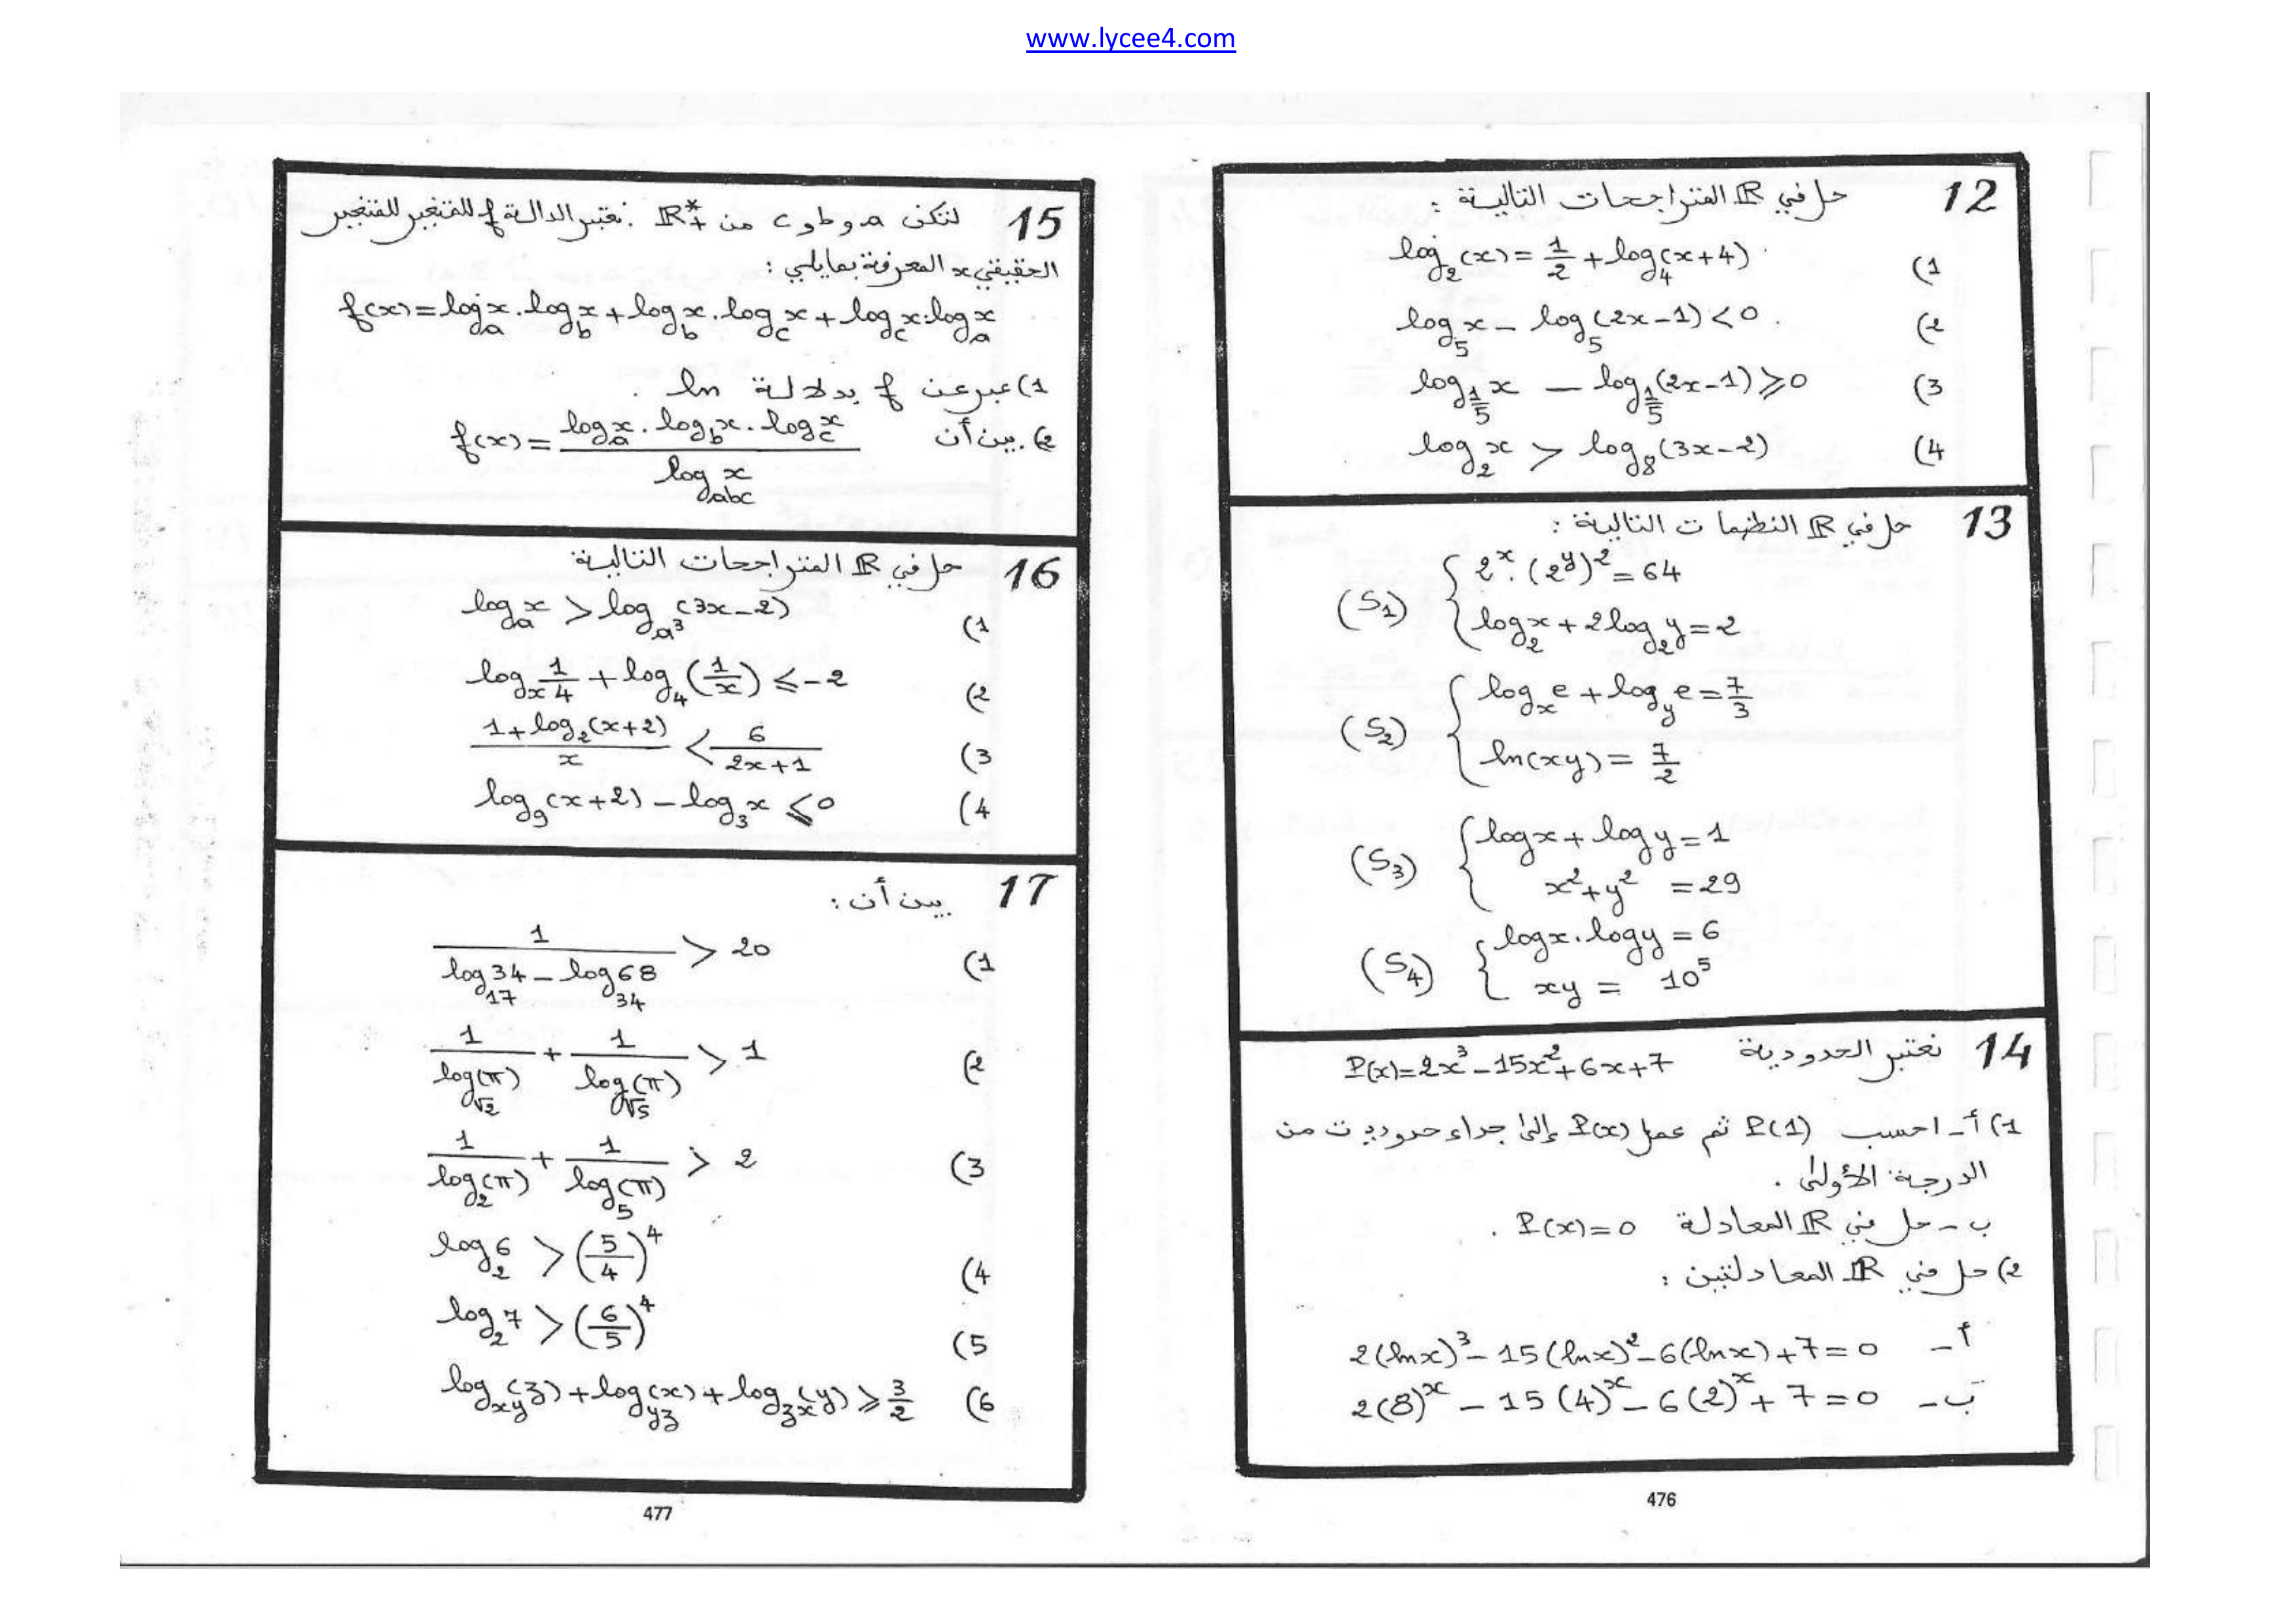 www.lycee4.com
12 حل في ℝ المتراجحات التالية :
1) log₂(x) = 1/2 + log₄(x+4)
2) log₅ x − log₅(2x−1) < 0
3) log_{1/5} x − log_{1/5}(2x−1) ⩾ 0
4) log₂ x > log₈(3x−2)
13 حل في ℝ النظمات التالية :
(S₁) { 2ˣ . (2ʸ)² = 64
log₂ x + 2 log₂ y = 2
(S₂) { log_x e + log_y e = 7/3
ln(xy) = 7/2
(S₃) { log x + log y = 1
x² + y² = 29
(S₄) { log x . log y = 6
xy = 10⁵
14 نعتبر الحدودية P(x) = 2x³ − 15x² + 6x + 7
1) أ ـ احسب P(1) ثم عمل P(x) إلى جداء حدوديت من
الدرجة الأولى .
ب ـ حل في ℝ المعادلة P(x) = 0 .
2) حل في ℝ المعادلتين :
أ ـ 2(ln x)³ − 15(ln x)² − 6(ln x) + 7 = 0
ب ـ 2(8)ˣ − 15(4)ˣ − 6(2)ˣ + 7 = 0
476
15 لتكن a و b و c من ℝ*₊ . نعتبر الدالة f للمتغير للمتغير
الحقيقي x المعرفة بمايلي :
f(x) = log_a x . log_b x + log_b x . log_c x + log_c x . log_a x
1) عبر عن f بدلالة ln .
2) . بين أن f(x) = (log_a x . log_b x . log_c x) / (log_{abc} x)
16 حل في ℝ المتراجحات التالية
1) log_a x > log_{a³}(3x−2)
2) log_x 1/4 + log₄(1/x) ⩽ −2
3) (1 + log₂(x+2)) / x < 6 / (2x+1)
4) log₉(x+2) − log₃ x ⩽ 0
17 بين أن :
1) 1 / (log₁₇ 34 − log₃₄ 68) > 20
2) 1 / log_{√2}(π) + 1 / log_{√5}(π) > 1
3) 1 / log₂(π) + 1 / log₅(π) > 2
4) log₂ 6 > (5/4)⁴
5) log₂ 7 > (6/5)⁴
6) log_{xy}(z) + log_{yz}(x) + log_{zx}(y) ⩾ 3/2
477